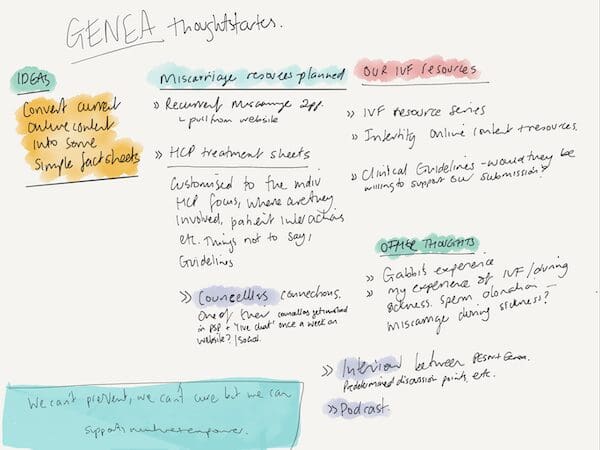 GENEA thoughtstarter.
IDEAS
Convert current
online content
into some
simple factsheets
Miscarriage resources planned
» Recurrent miscarriage 2pp.
↳ pull from website
» HCP treatment sheets
Customised to the indiv
HCP focus, where are they
involved, patient interactions
etc. Things not to say,
Guidelines
» Councellors connections.
One of their counsellors get involved
in PSP + 'live chat' once a week on
website? / social.
OUR IVF resources
» IVF Resource Series
» Infertity Online content + resources.
» Clinical Guidelines - would they be
willing to support our submission?
OTHER THOUGHTS
» Gabbi's experience
» my experience of IVF / during
sickness. sperm donation —
miscarriage during sickness?
» Interview between and Genea.
Predetermined discussion points, etc.
» Podcast.
We can't prevent, we can't cure but we can
support nurture + empower.